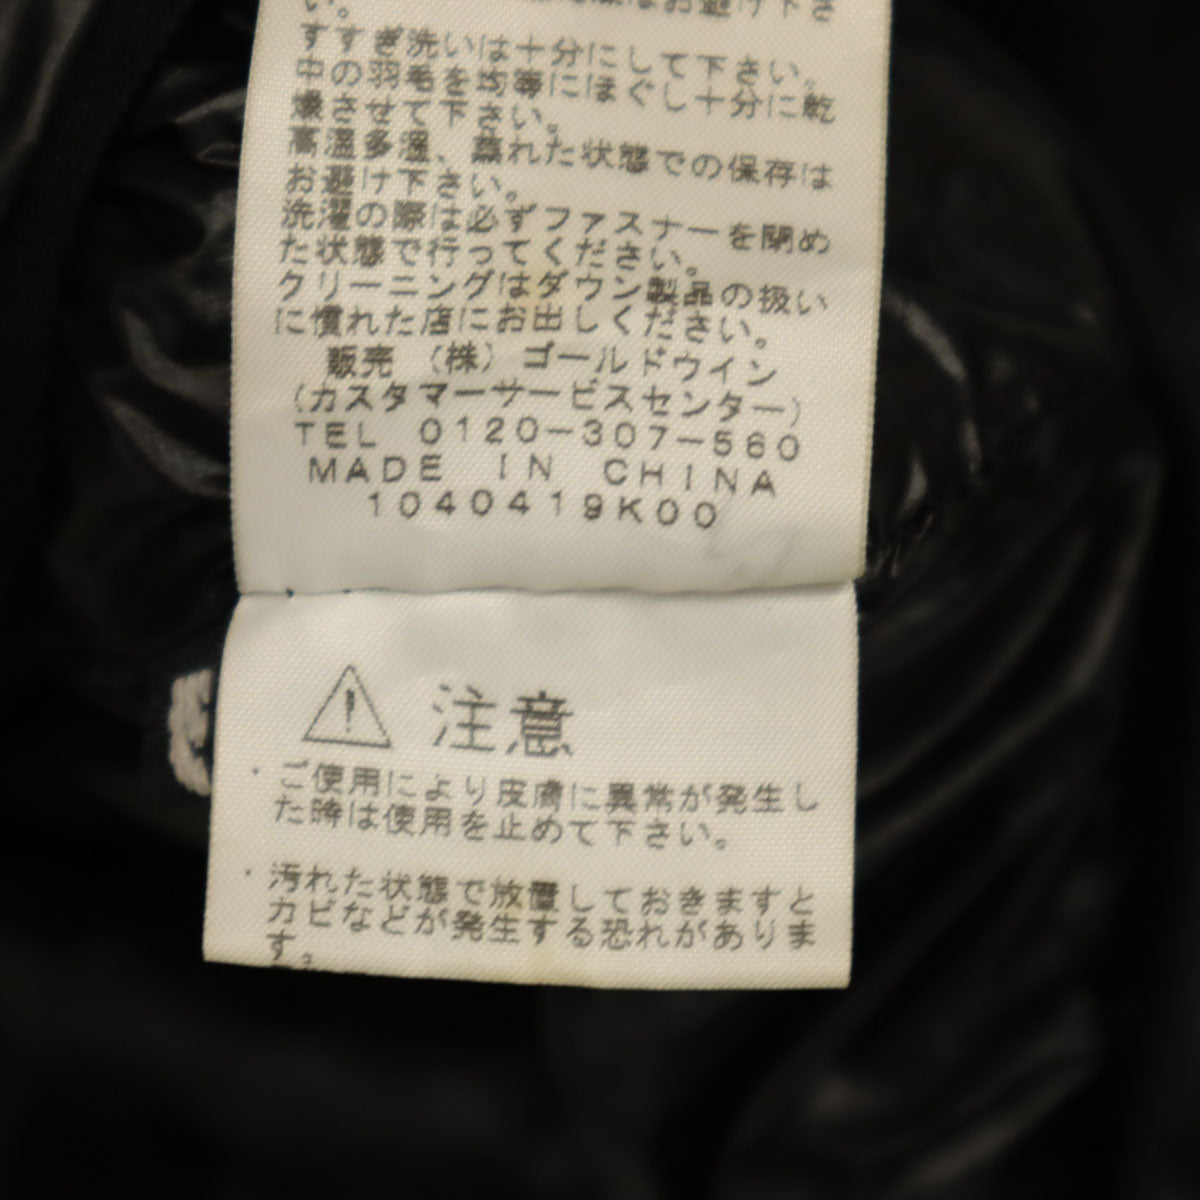 はお避け下さ
い。
すすぎ洗いは十分にして下さい。
中の羽毛を均等にほぐし十分に乾
燥させて下さい。
高温多湿、蒸れた状態での保存は
お避け下さい。
洗濯の際は必ずファスナーを閉め
た状態で行ってください。
クリーニングはダウン製品の扱い
に慣れた店にお出しください。
販売 (株)ゴールドウイン
(カスタマーサービスセンター)
TEL 0120-307-560
MADE IN CHINA
1040419K00
注意
・ご使用により皮膚に異常が発生し
た時は使用を止めて下さい。
・汚れた状態で放置しておきますと
カビなどが発生する恐れがありま
す。